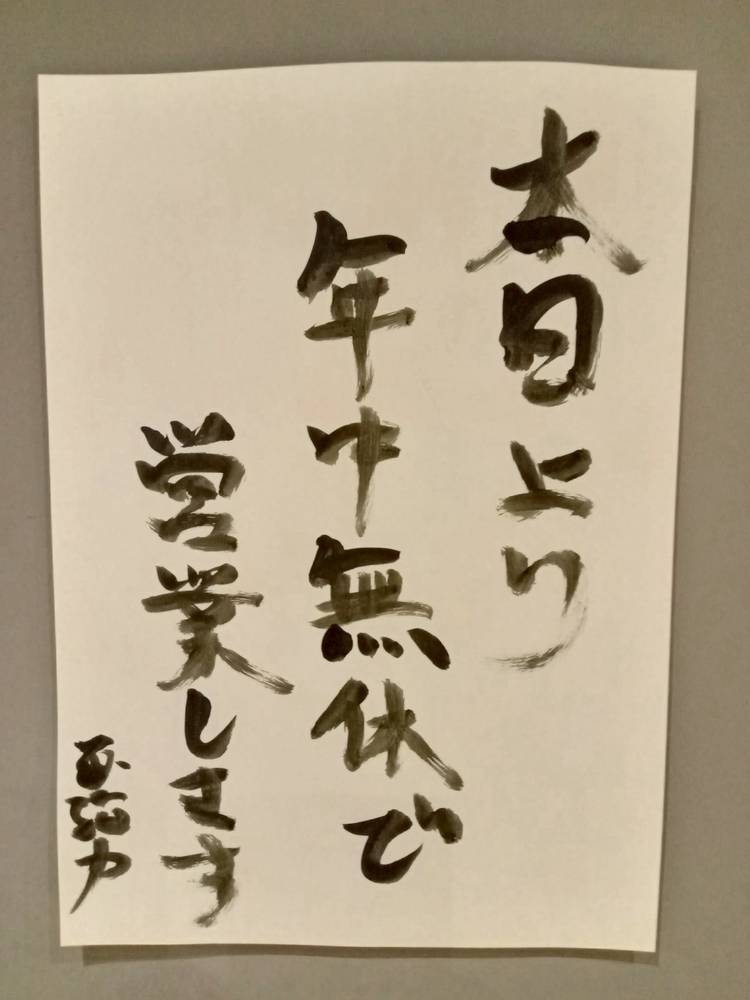 本日より
年中無休で
営業します